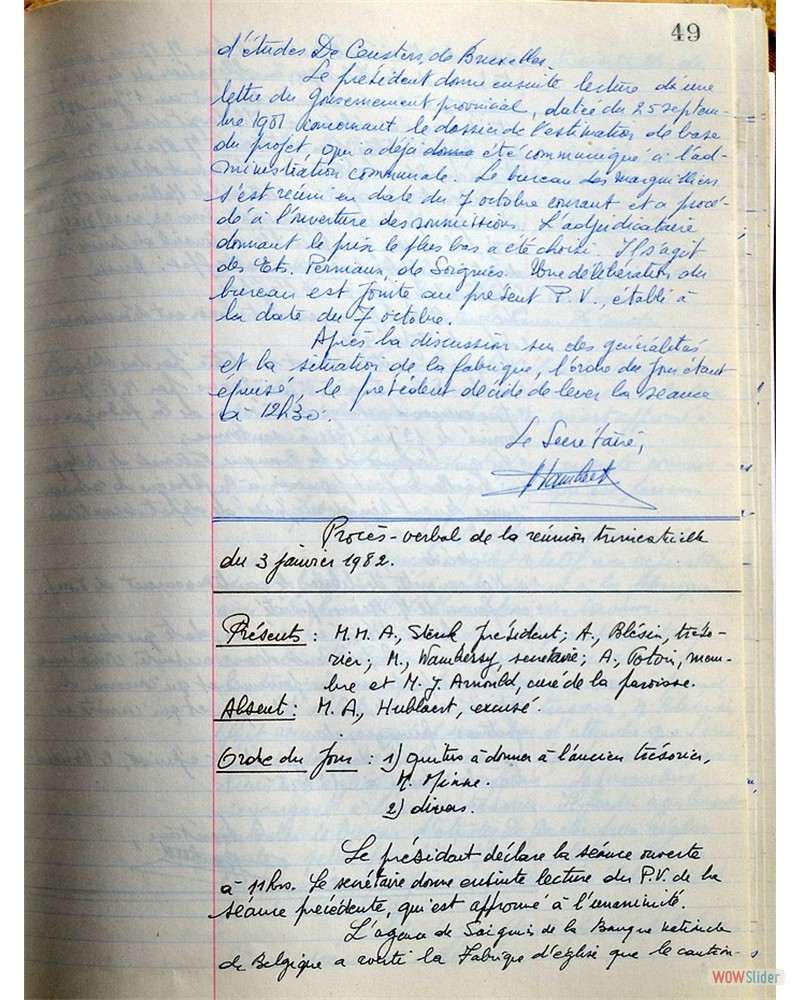 49
d'études De Ceusters de Bruxelles.
Le président donne ensuite lecture d'une
lettre du Gouvernement provincial, datée du 25 septem-
bre 1981 concernant le dossier de l'estimation de base
du projet, qui a déjà donne été communiqué à l'ad-
ministration communale. Le bureau des marguilliers
s'est réuni en date du 7 octobre courant et a procé-
dé à l'ouverture des soumissions. L'adjudicataire
donnant le prix le plus bas a été choisi. Il s'agit
des Ets. Perniaux, de Soignies. Une délibération du
bureau est jointe au présent P.V., établi à
la date du 7 octobre.
Après la discussion sur des généralités
et la situation de la fabrique, l'ordre du jour étant
épuisé, le président décide de lever la séance
à 12h30.
Le Secrétaire,
Procès-verbal de la réunion trimestrielle
du 3 janvier 1982.
Présents : M.M. A., Sterk président; A., Blésin, tréso-
rier; M., Wambersy, secrétaire; A., Potvin, mem-
bre et M. J. Arnould, curé de la paroisse.
Absent : M. A., Hublaert, excusé.
Ordre du jour : 1) quitus à donner à l'ancien trésorier,
M. Minne.
2) divers.
Le président déclare la séance ouverte
à 11hrs. Le secrétaire donne ensuite lecture du P.V. de la
séance précédente, qui est approuvé à l'unanimité.
L'agence de Soignies de la Banque nationale
de Belgique a averti la Fabrique d'église que le caution-
WOWSlider